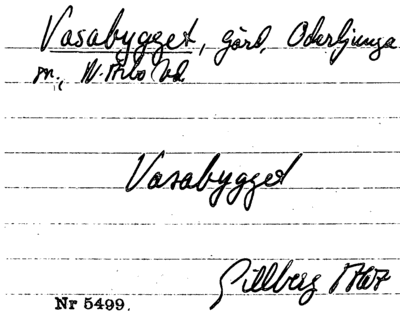 Vasabygget, gård, Oderljunga
sn., N. Åsbo hd.
Vasabygget
Gillberg 1767
Nr 5499.